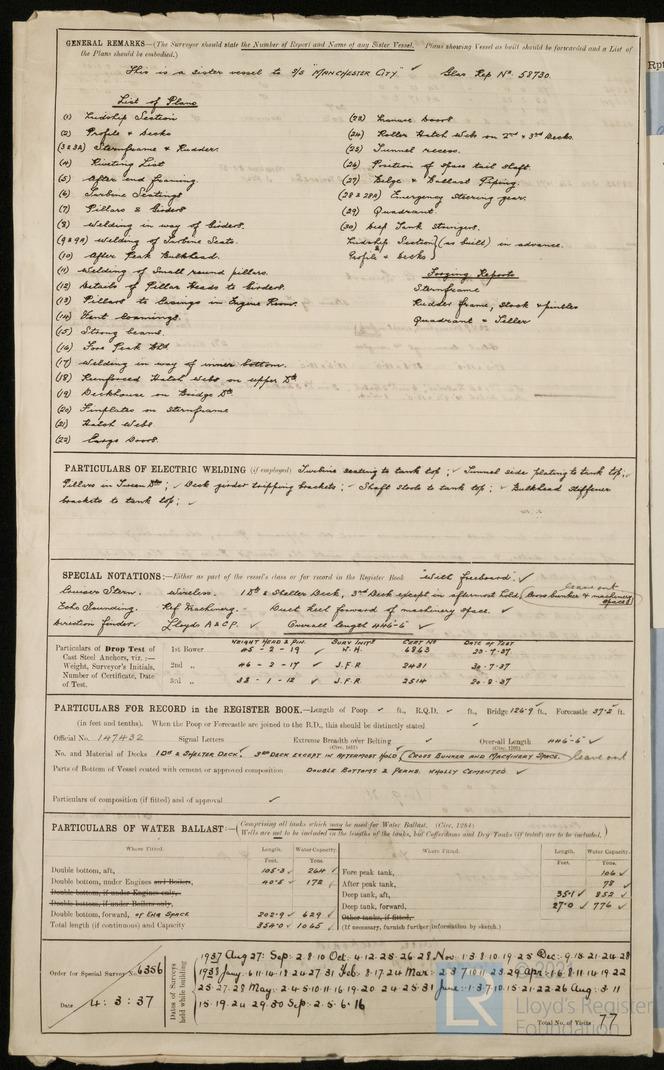 GENERAL REMARKS—(The Surveyor should state the Number of Report and Name of any Sister Vessel. Plans showing Vessel as built should be forwarded and a List of
the Plans should be embodied.)
This is a sister vessel to S/S "MANCHESTER CITY" ✓ Glas Rep No. 58730.
List of Plans
(1) Midship Section
(2) Profile & Decks
(3 & 3A) Sternframe & Rudder.
(4) Riveting List
(5) After end framing.
(6) Turbine Seatings
(7) Pillars & Girders
(8) Welding in way of Girders.
(9 & 9A) Welding of Turbine Seats.
(10) After Peak Bulkhead.
(11) Welding of Small round pillars.
(12) Details of Pillar Heads to Girders.
(13) Pillars to Casings in Engine Room.
(14) Vent Coamings.
(15) Strong beams.
(16) Fore Peak Bhd
(17) Welding in way of inner bottom.
(18) Reinforced Hatch Webs on upper Dk
(19) Deckhouse on Bridge Dk
(20) Finplates on Sternframe
(21) Hatch Webs
(22) Cargo Doors.
(23) Doors
(24) Roller Hatch Webs on 2nd & 3rd Decks.
(25) Tunnel recess.
(26) Position of spare tail shaft.
(27) Bilge & Ballast Piping.
(28 & 28A) Emergency Steering gear.
(29) Quadrant.
(30) Deep Tank Stringers.
Midship Section } (as built) in advance.
&
Profile & Decks }
Forging Reports
Sternframe
Rudder frame, Stock & pintles
Quadrant & Tiller
PARTICULARS OF ELECTRIC WELDING (if employed) Turbine seating to tank top; ✓ Tunnel side plating to tank top; ✓
Pillars in Tween Dks; ✓ Deck girder tripping brackets; ✓ Shaft stools to tank top; ✓ Bulkhead stiffener
brackets to tank top; ✓
SPECIAL NOTATIONS:—Either as part of the vessel's class or for record in the Register Book "With freeboard". ✓
leave out
Cruiser Stern. Wireless. 1 Dk & Shelter Deck, 3rd Deck except in aftermost hold, (Cross bunker & machinery space)
Echo Sounding. Ref Machinery. Duct keel forward of machinery space. ✓
Direction finder. Lloyds A & CP. ✓ Overall length 446'-6" ✓
Particulars of Drop Test of
Cast Steel Anchors, viz.:—
Weight, Surveyor's Initials,
Number of Certificate, Date
of Test.
WEIGHT HEAD & PIN. SURV INITS CERT NO DATE OF TEST
1st Bower 45 - 2 - 19 ✓ W. H. 6863 23-7-37
2nd „ 46 - 2 - 17 ✓ J. F. R 2431 30-7-37
3rd „ 38 - 1 - 12 ✓ J. F. R 2514 20-8-37
PARTICULARS FOR RECORD in the REGISTER BOOK.—Length of Poop ✓ ft., R.Q.D. ✓ ft., Bridge 126.9 ft., Forecastle 37.2 ft.
(in feet and tenths). When the Poop or Forecastle are joined to the B.D., this should be distinctly stated ✓
Official No. 147432 Signal Letters Extreme Breadth over Belting ✓ Over-all Length 446'-6" ✓
(Circ. 1611) (Circ. 1703)
No. and Material of Decks 1 DK & SHELTER DECK. 3RD DECK EXCEPT IN AFTERMOST HOLD (CROSS BUNKER AND MACHINERY SPACE. leave out
Parts of Bottom of Vessel coated with cement or approved composition DOUBLE BOTTOMS & PEAKS. WHOLLY CEMENTED ✓
Particulars of composition (if fitted) and of approval ✓
PARTICULARS OF WATER BALLAST:—(Comprising all tanks which may be used for Water Ballast. (Circ. 1284)
Wells are not to be included in the lengths of the tanks, but Cofferdams and Dry Tanks (if tested) are to be included.)
Where Fitted. Length. Water Capacity. Where Fitted. Length. Water Capacity.
Feet. Tons. Feet. Tons.
Double bottom, aft, 105.3 ✓ 264 ✓ Fore peak tank, 106 ✓
Double bottom, under Engines and Boilers, 40.5 ✓ 172 ✓ After peak tank, 78 ✓
Double bottom, if under Engines only, Deep tank, aft, 35.1 ✓ 852 ✓
Double bottom, if under Boilers only, Deep tank, forward, 27.0 ✓ 776 ✓
Double bottom, forward, OF ENG SPACE 202.9 ✓ 629 ✓ Other tanks, if fitted,
Total length (if continuous) and Capacity 354.0 ✓ 1065 ✓ (If necessary, furnish further information by sketch.)
Order for Special Survey No. 6356
Date 4 : 3 : 37
Dates of Surveys
held while building
1937 Aug 27: Sep: 2. 8. 10 Oct: 4. 12. 25. 26. 28 Nov: 1. 3. 8. 10. 19. 25 Dec: 9. 15. 21. 24. 28
1938 Jany: 6. 11. 14. 18. 24. 27. 31 Feb: 8. 17. 24 Mar: 2. 3. 7. 10. 11. 23. 29 Apr: 1. 6. 8. 11. 14. 19. 22
25. 27. 28 May: 2. 4. 5. 10. 11. 16. 19. 20. 24. 25. 31 June: 1. 3. 7. 10. 15. 21. 22. 26 Aug: 3. 11
15. 19. 24. 29. 30 Sep: 2. 5. 6. 16
Total No. of Visits 77
Rpt
© 2021
LR
Lloyd's Register
Foundation